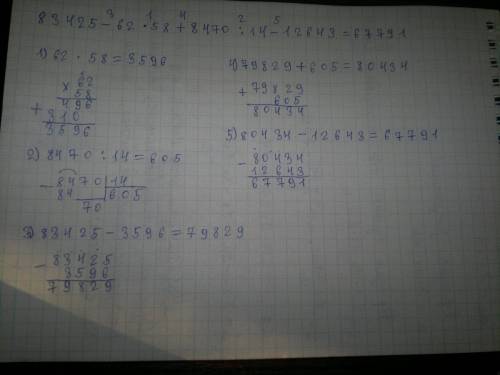 3 1 4 2 5
83425 - 62 · 58 + 8470 : 14 - 12643 = 67791
1) 62 · 58 = 3596
× 62
58
+ 496
310
3596
2) 8470 : 14 = 605
- 8470 | 14
84 | 605
70
3) 83425 - 3596 = 79829
- 83425
3596
79829
4) 79829 + 605 = 80434
+ 79829
605
80434
5) 80434 - 12643 = 67791
- 80434
12643
67791